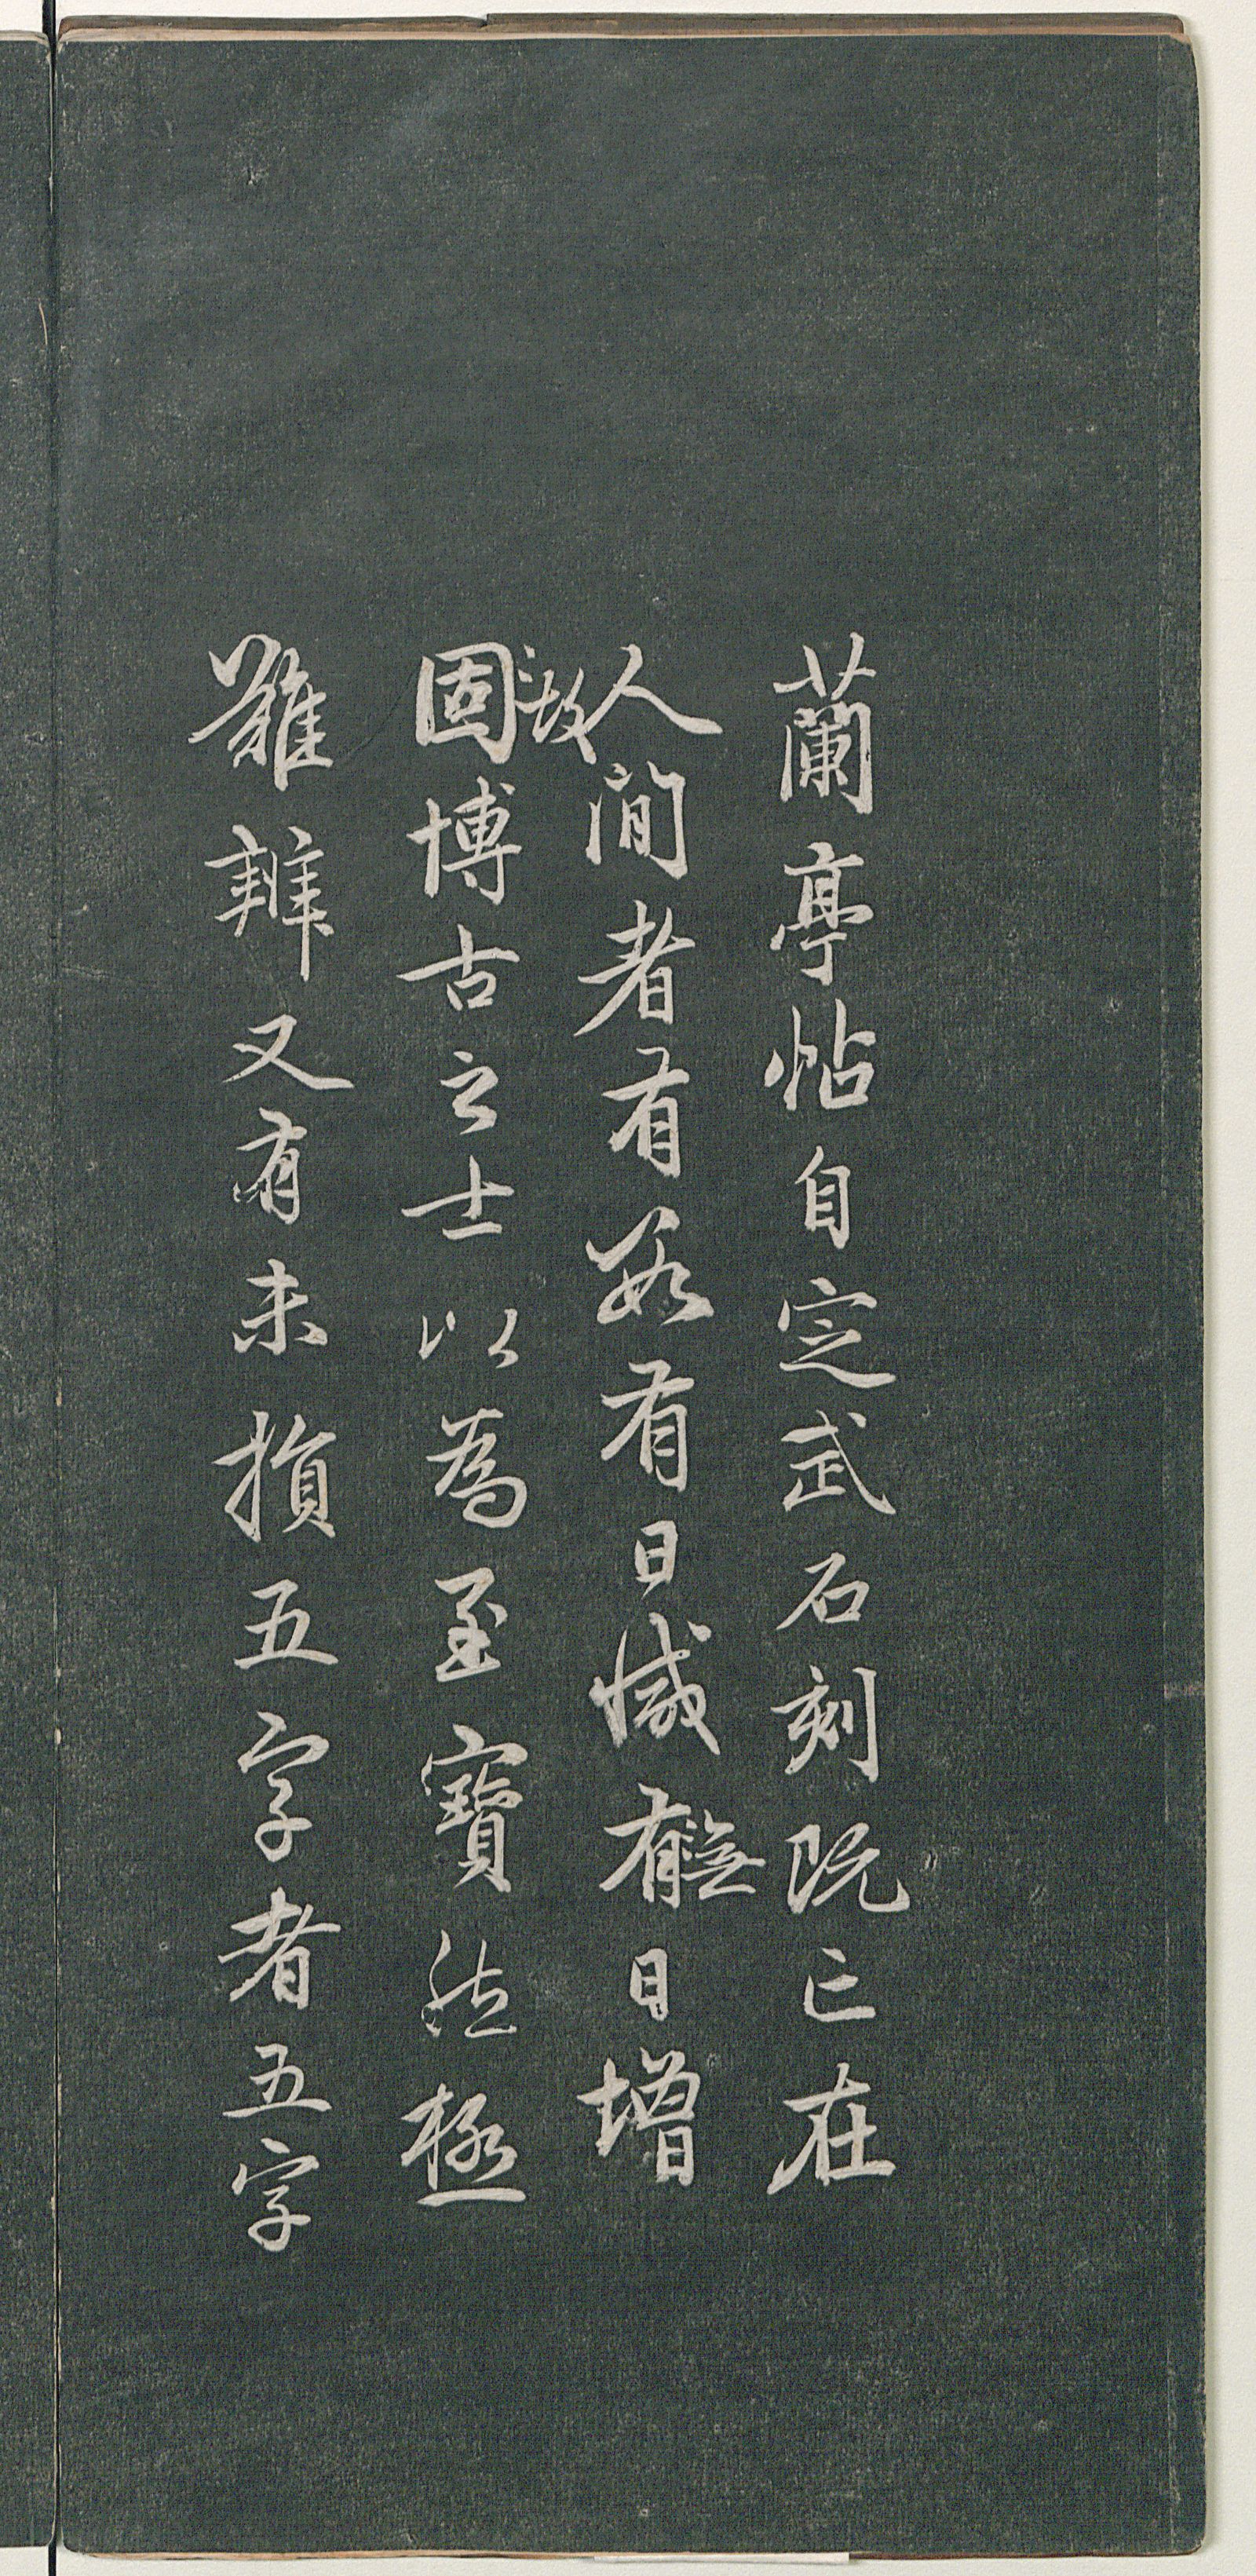 蘭亭帖自定武石刻既亡在
人間者有數有日減無日增
故
固博古之士以為至寶然極
難辨又有未損五字者五字